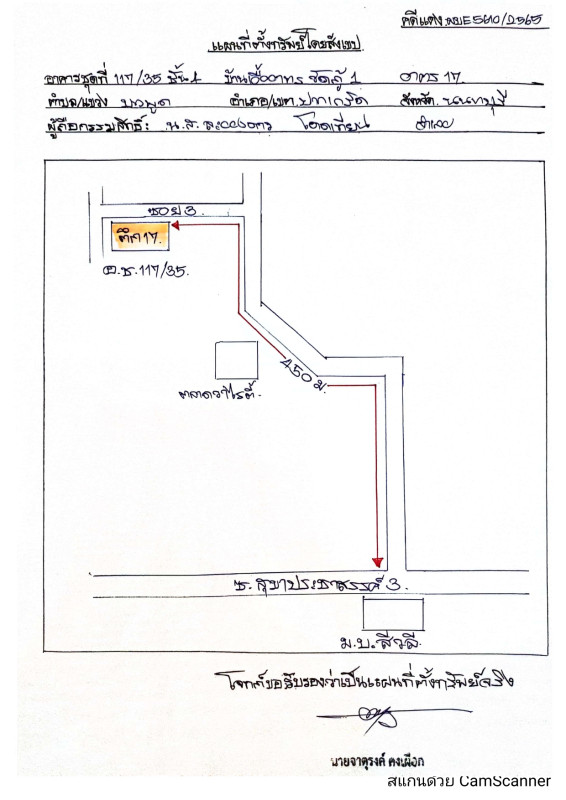 คดีแดง ผบE5610/2565
แผนที่ตั้งทรัพย์โดยสังเขป
อาคารชุดที่ 117/35 ชั้น 1 บ้านเอื้ออาทร รัตภู 1 อาคาร 17.
ตำบล/แขวง บางพูด อำเภอ/เขต ปากเกร็ด จังหวัด นนทบุรี
ผู้ถือกรรมสิทธิ์: น.ส.
ซอย 3.
ตึก 17.
อ.ช. 117/35.
450 ม.
ตลาดวาไรตี้.
ซ. สุขาประชาสรรค์ 3.
ม.บ. สีวลี.
โจทก์ขอรับรองว่าเป็นแผนที่ตั้งทรัพย์จริง
นายจาตุรงค์ คงเผือก
สแกนด้วย CamScanner